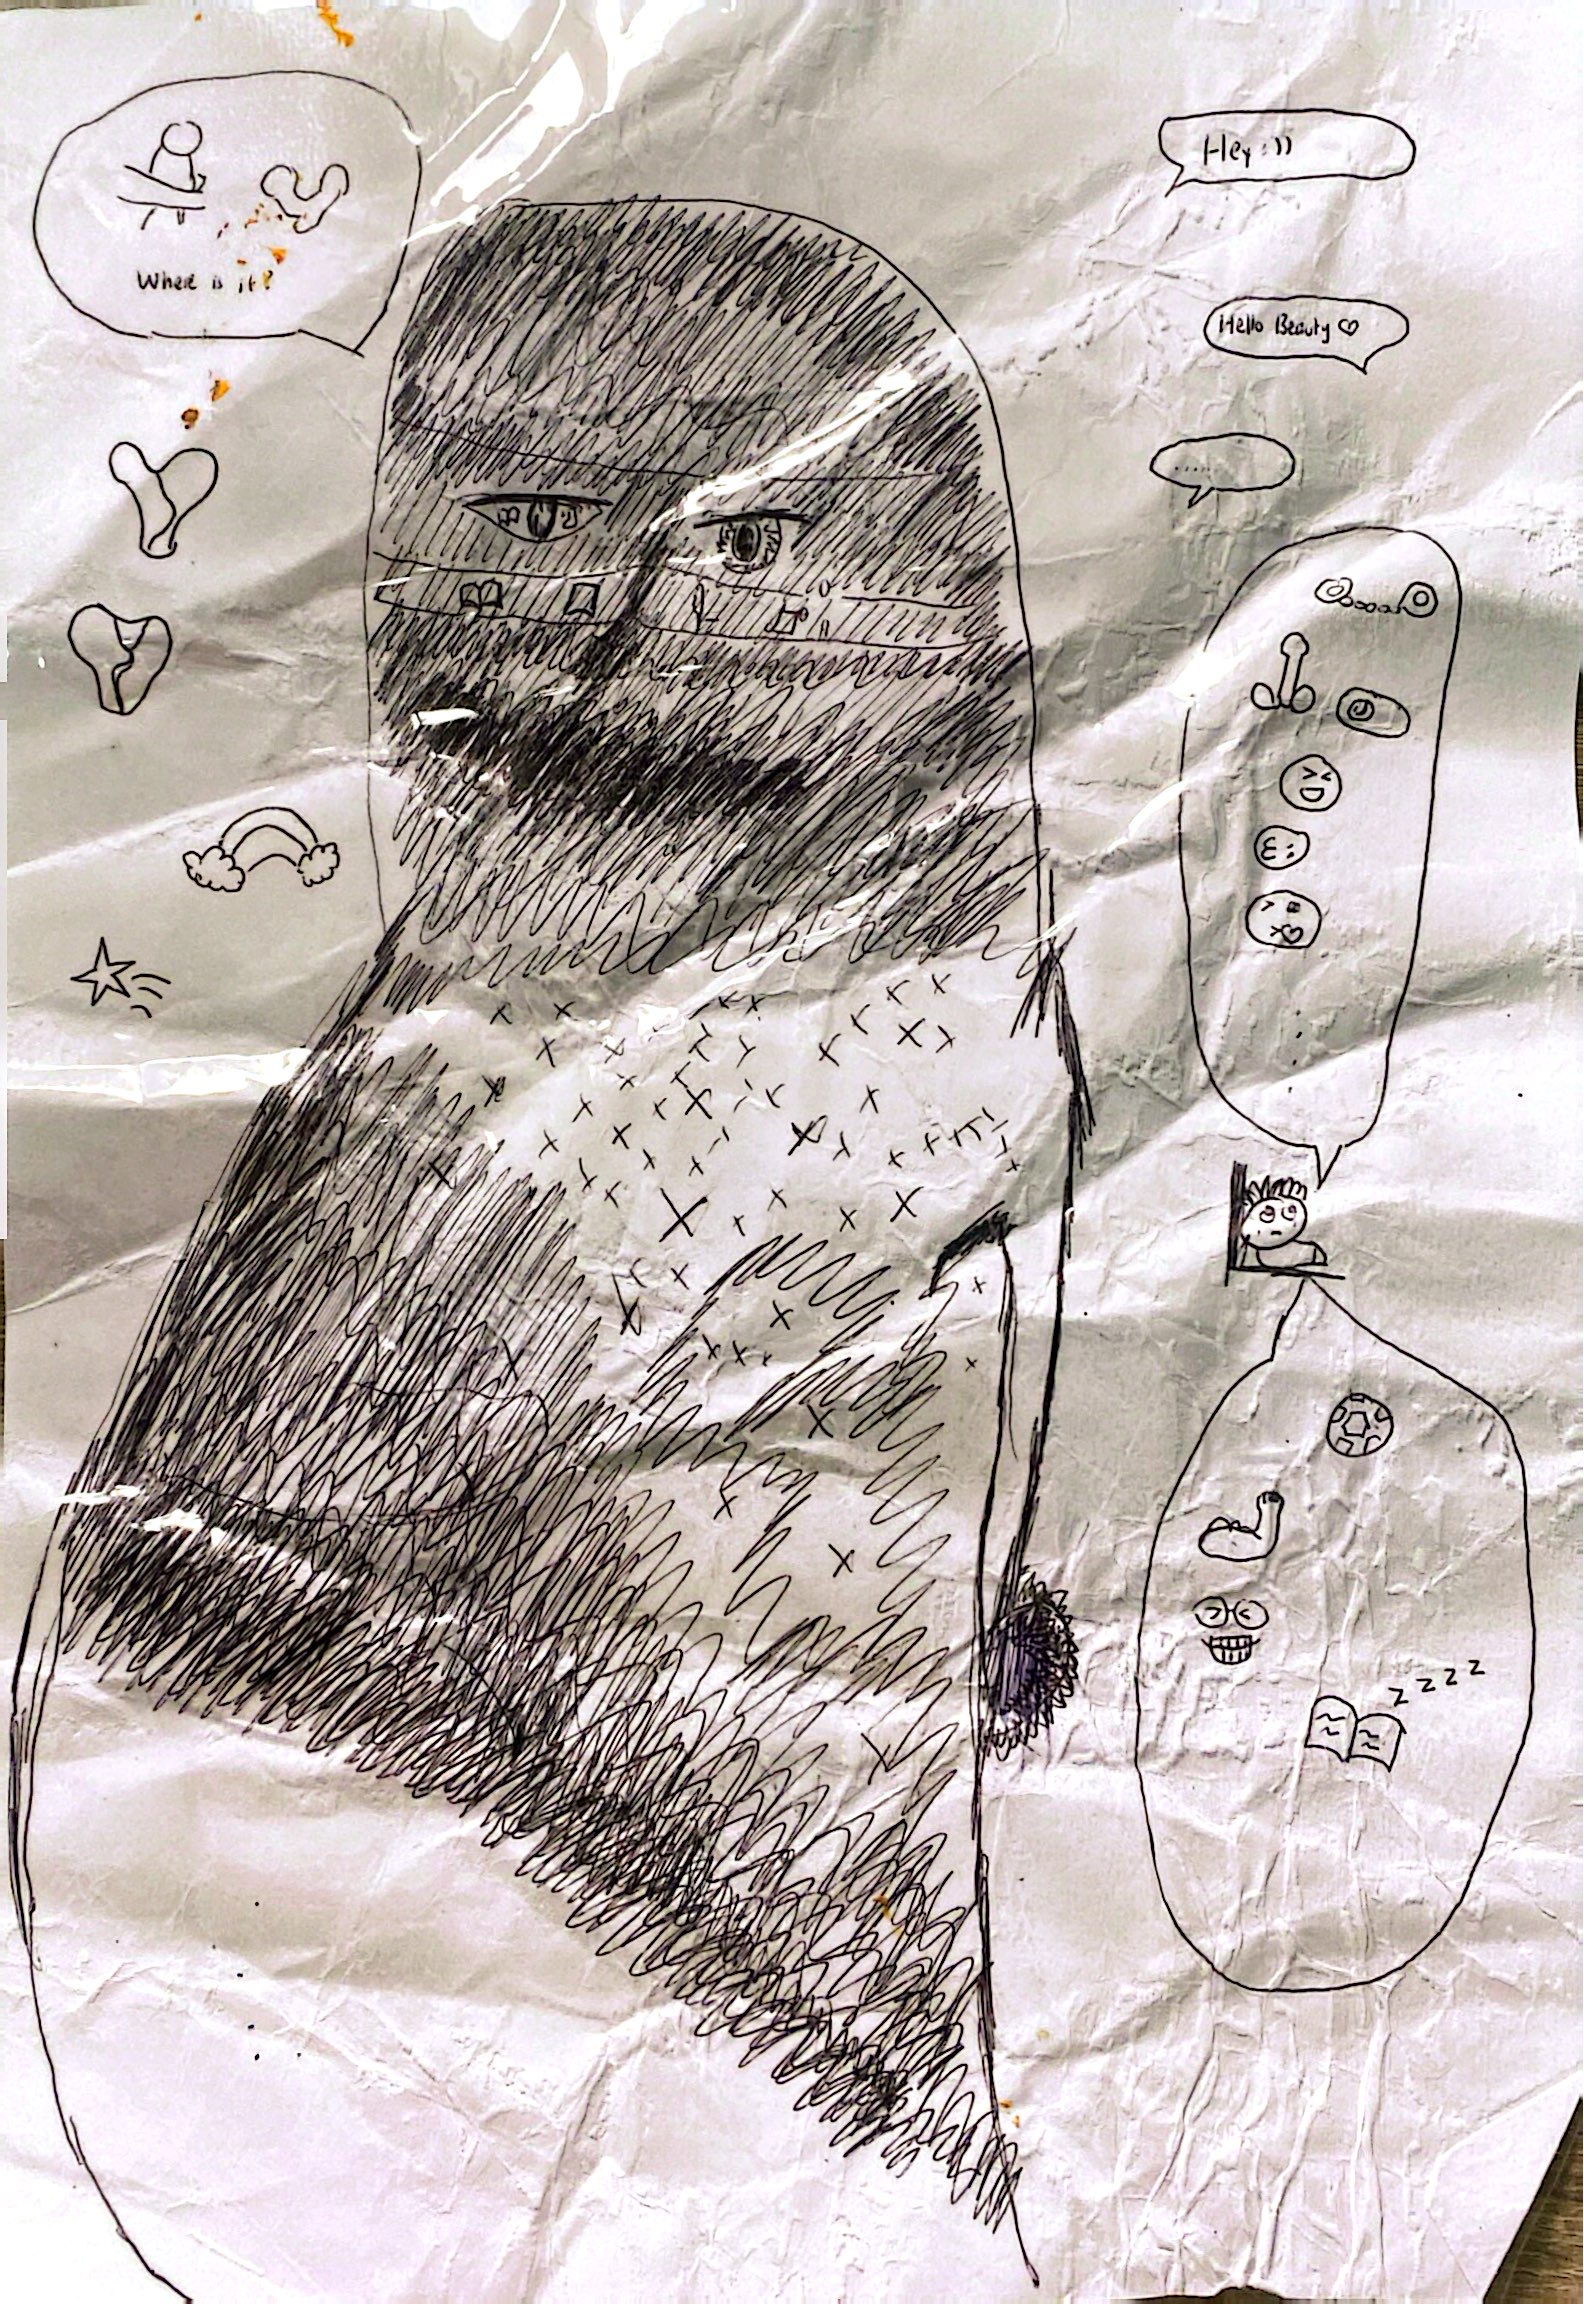 Where is it?
Hey :))
Hello Beauty ♡
......
z z z z